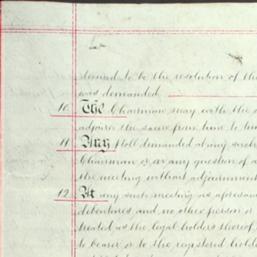 deemed to be the resolution of the
was demanded
10. The Chairman may with the
adjourn the same from time to
11. Any Poll demanded at any such
Chairman or on any question of a
the meeting without adjournment
12. At any such meeting as aforesaid
debentures and no other person
treated as the legal holders thereof
to bearer or to the registered